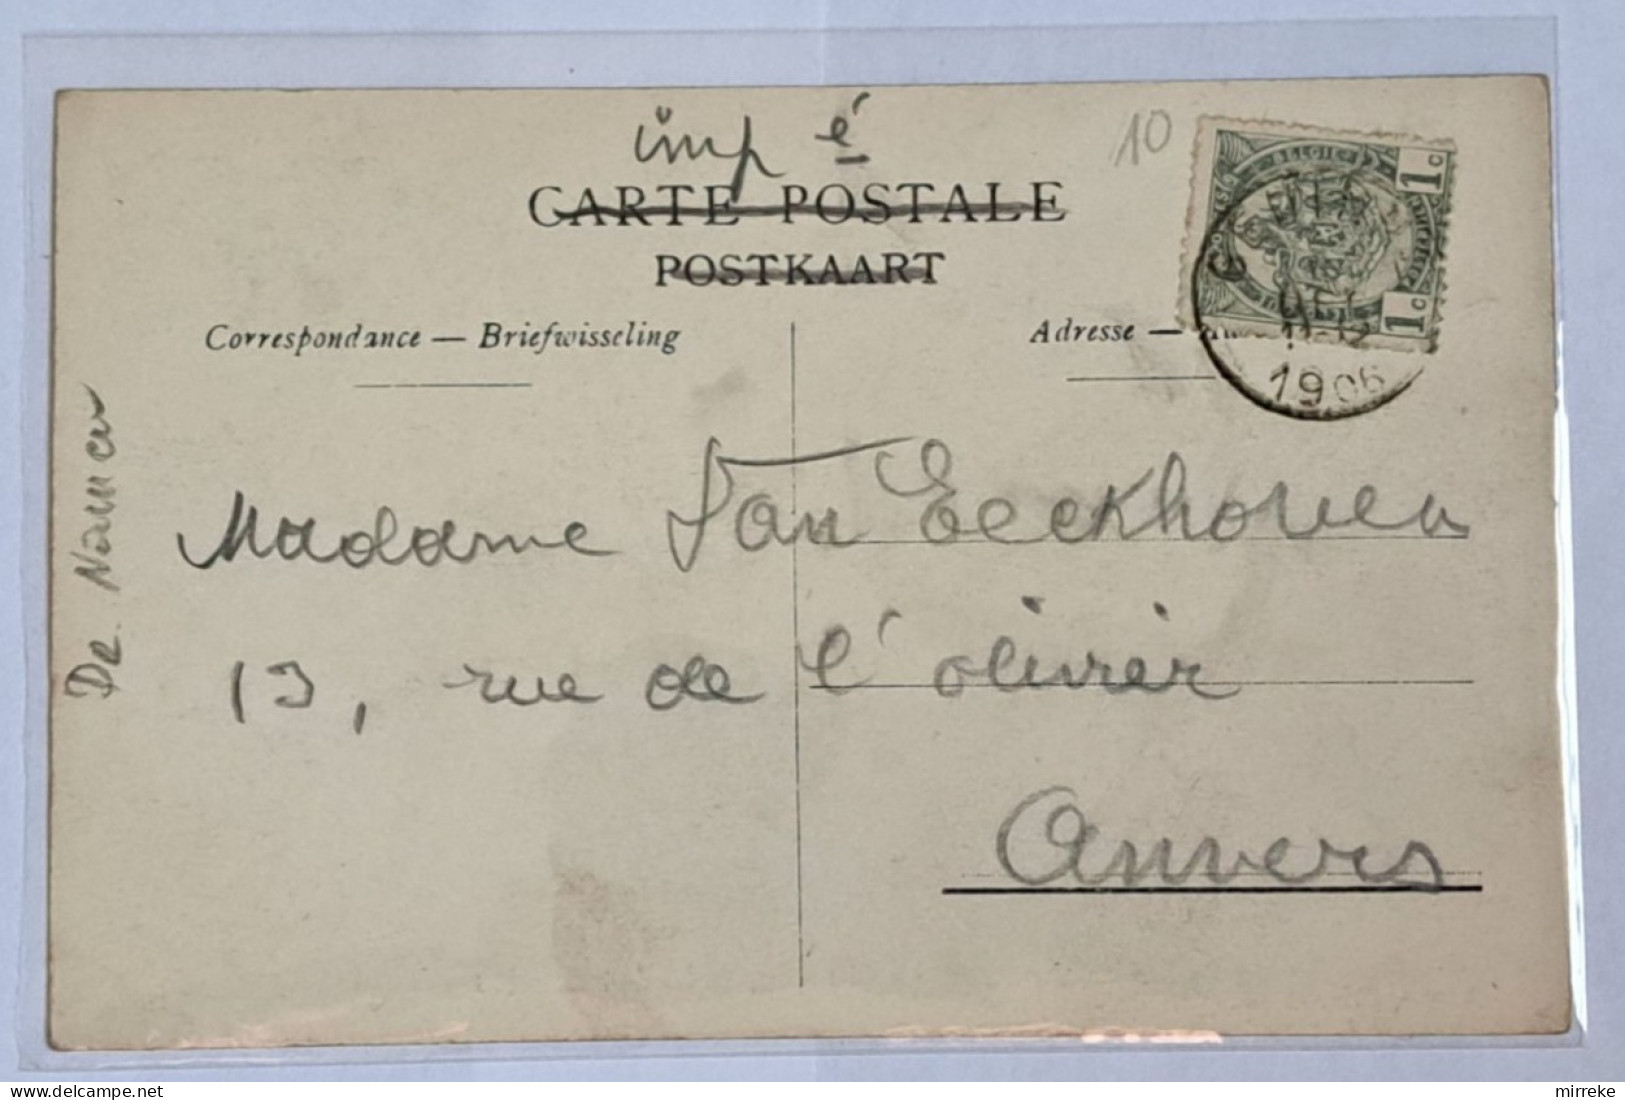 imp é
10
CARTE POSTALE
POSTKAART
Correspondance — Briefwisseling
Adresse —
BELGIE
1c
1c
DEC
11-12
1906
De Namur
Madame Van Eeckhoven
13, rue de l'olivier
Anvers
mirreke